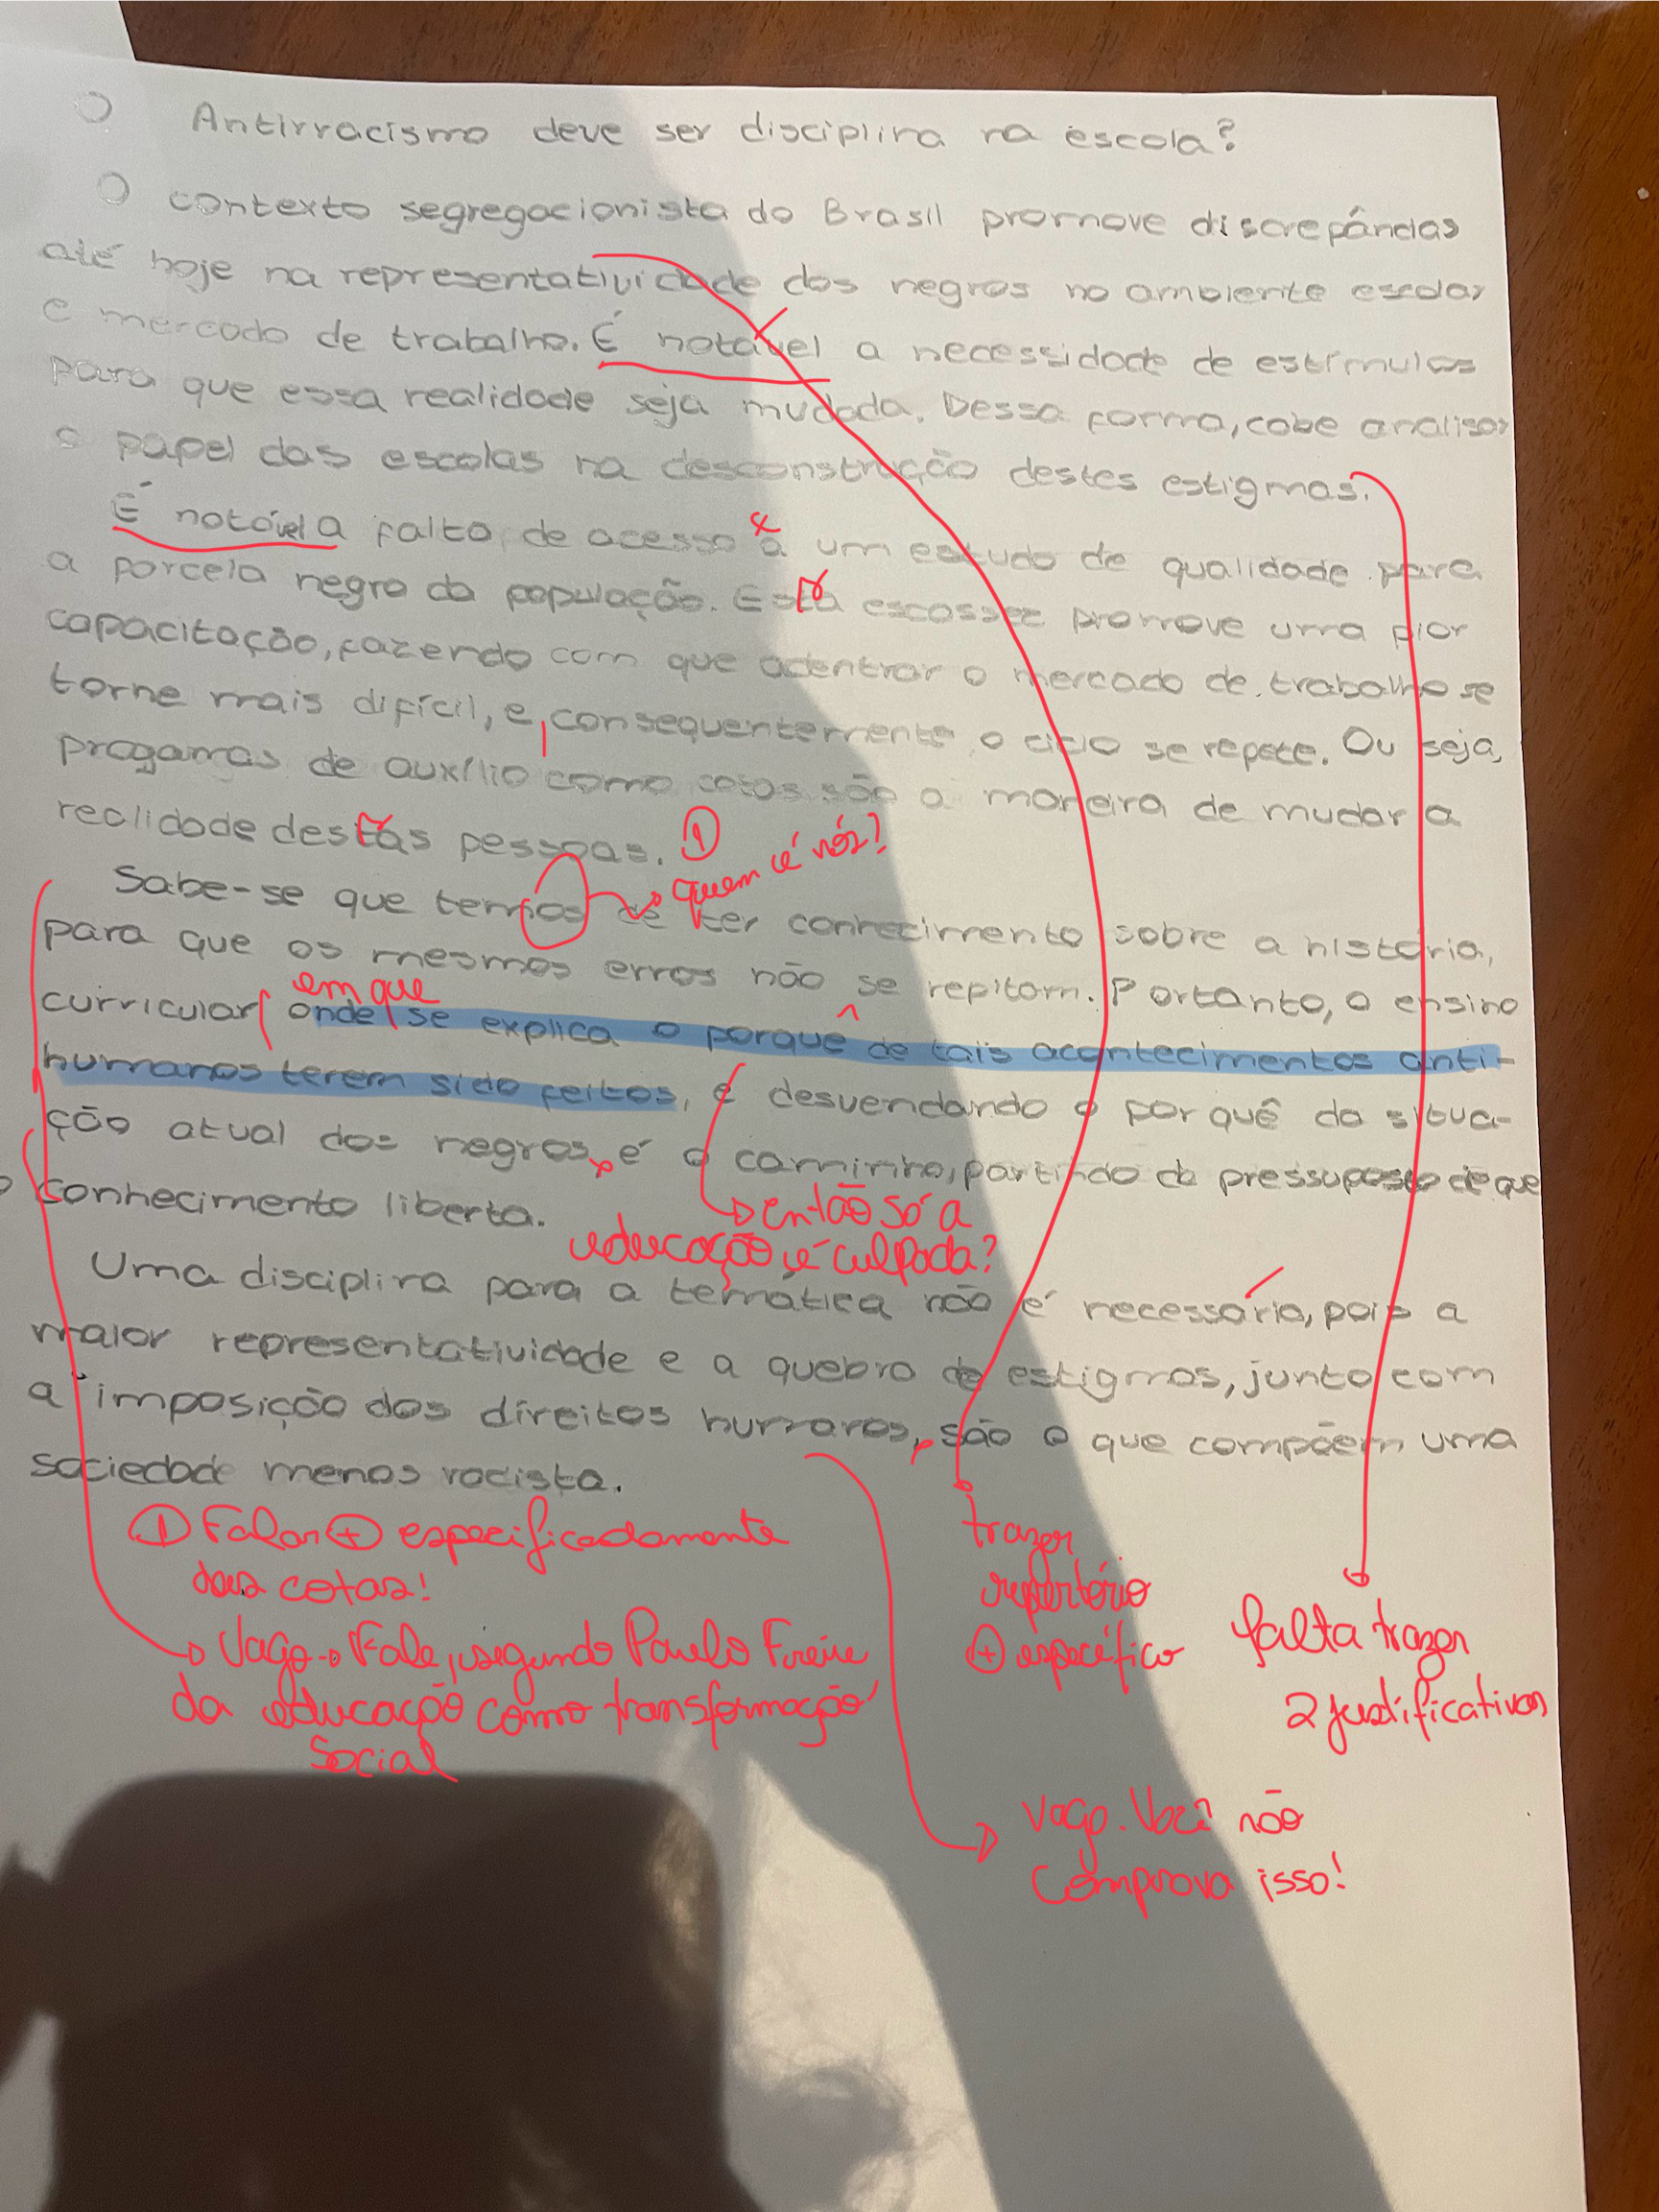 Antirracismo deve ser disciplina na escola?
O contexto segregacionista do Brasil promove discrepâncias
até hoje na representatividade dos negros no ambiente escolar
e mercado de trabalho. É notável a necessidade de estímulos
para que essa realidade seja mudada. Dessa forma, cabe analisar
o papel das escolas na desconstrução destes estigmas.
É notável a falta de acesso a um estudo de qualidade para
a porcela negra da população. Esta escassez promove uma pior
capacitação, fazendo com que adentrar o mercado de trabalho se
torne mais difícil, e, consequentemente o ciclo se repete. Ou seja,
progamas de auxílio como cotas são a maneira de mudar a
realidade destas pessoas. ①
quem é nós?
Sabe-se que temos de ter conhecimento sobre a história,
para que os mesmos erros não se repitam. Portanto, o ensino
em que
curricular onde se explica o porque de tais acontecimentos anti-
humanos terem sido feitos, e desvendando o por quê da situa-
ção atual dos negros, é o caminho, partindo do pressuposto de que
o conhecimento liberta.
então só a
educação é culpada?
Uma disciplina para a temática não é necessária, pois a
maior representatividade e a quebra de estigmas, junto com
a imposição dos direitos humanos, são o que compõem uma
sociedade menos racista.
① Falar + especificadamente
das cotas!
Vago → Fale, segundo Paulo Freire
da educação como transformação
social
trazer
repertório
+ específico
falta trazer
2 justificativas
Vago. Você não
comprova isso!